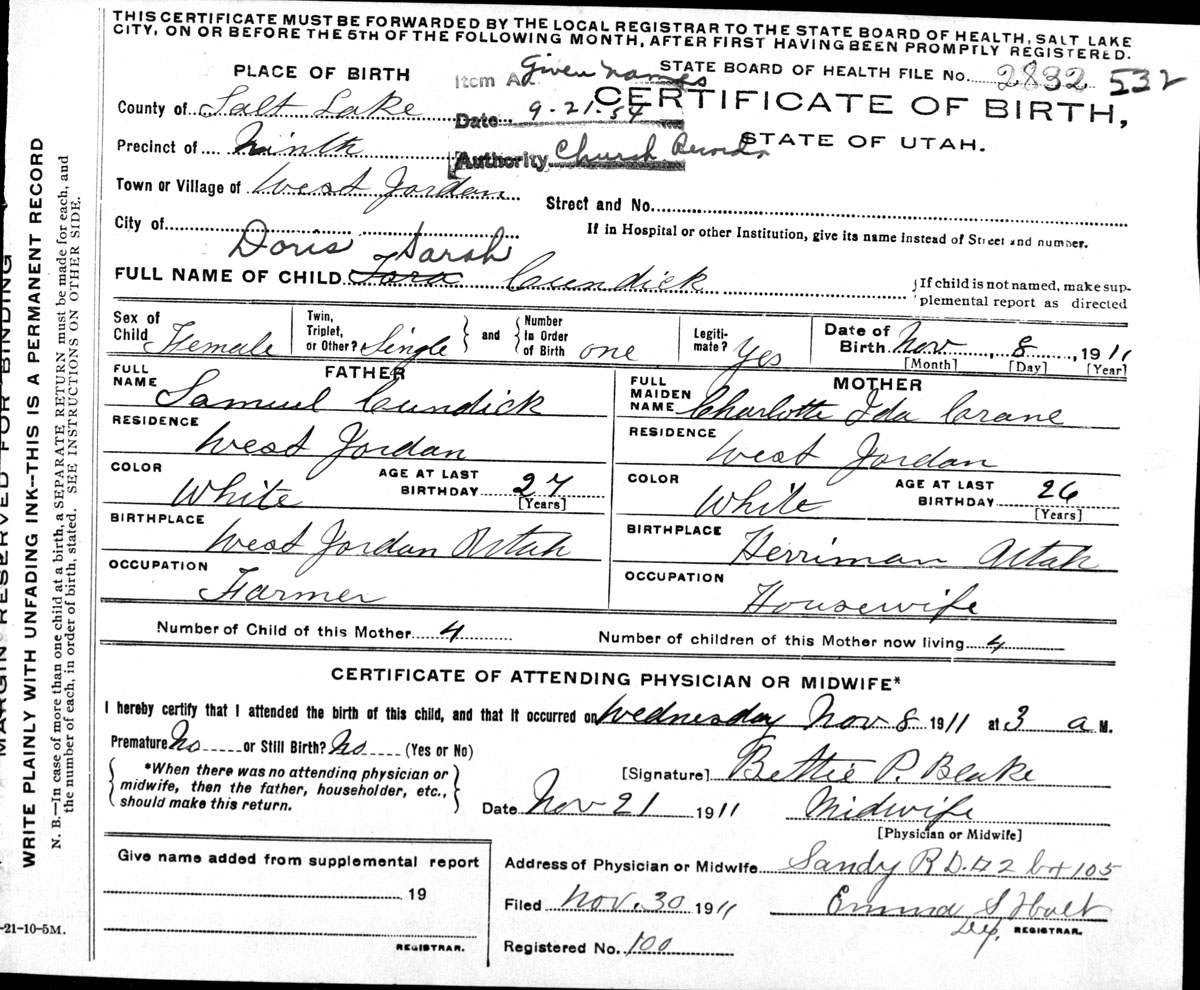 THIS CERTIFICATE MUST BE FORWARDED BY THE LOCAL REGISTRAR TO THE STATE BOARD OF HEALTH, SALT LAKE
CITY, ON OR BEFORE THE 5TH OF THE FOLLOWING MONTH, AFTER FIRST HAVING BEEN PROMPTLY REGISTERED.
PLACE OF BIRTH
Item A Given names
STATE BOARD OF HEALTH FILE No. 2832 532
County of Salt Lake
Date 9-21-54
CERTIFICATE OF BIRTH,
Precinct of Ninth
Authority Church Records
STATE OF UTAH.
Town or Village of West Jordan
Street and No.
City of
If in Hospital or other Institution, give its name instead of Street and number.
Doris Sarah
FULL NAME OF CHILD Tora Cundick
If child is not named, make sup-
plemental report as directed
Sex of Child Female
Twin, Triplet, or Other? Single and Number In Order of Birth one
Legiti-mate? Yes
Date of Birth Nov 8, 1911
[Month] [Day] [Year]
FATHER
FULL NAME Samuel Cundick
RESIDENCE West Jordan
COLOR White
AGE AT LAST BIRTHDAY 27
[Years]
BIRTHPLACE West Jordan Utah
OCCUPATION Farmer
MOTHER
FULL MAIDEN NAME Charlotte Ida Crane
RESIDENCE West Jordan
COLOR White
AGE AT LAST BIRTHDAY 26
[Years]
BIRTHPLACE Herriman Utah
OCCUPATION Housewife
Number of Child of this Mother 4
Number of children of this Mother now living 4
CERTIFICATE OF ATTENDING PHYSICIAN OR MIDWIFE*
I hereby certify that I attended the birth of this child, and that it occurred on Wednesday Nov 8 1911 at 3 a M.
Premature No or Still Birth? No (Yes or No)
*When there was no attending physician or
midwife, then the father, householder, etc.,
should make this return.
[Signature] Bettie P. Blake
Date Nov 21 1911
Midwife
[Physician or Midwife]
Give name added from supplemental report
19
REGISTRAR.
Address of Physician or Midwife Sandy R D. #2 bx 105
Filed Nov. 30 1911
Emma S Holt
Dep. REGISTRAR.
Registered No. 100
-21-10-5M.
MARGIN RESERVED FOR BINDING
WRITE PLAINLY WITH UNFADING INK--THIS IS A PERMANENT RECORD
N. B.—In case of more than one child at a birth, a SEPARATE RETURN must be made for each, and
the number of each, in order of birth, stated. SEE INSTRUCTIONS ON OTHER SIDE.